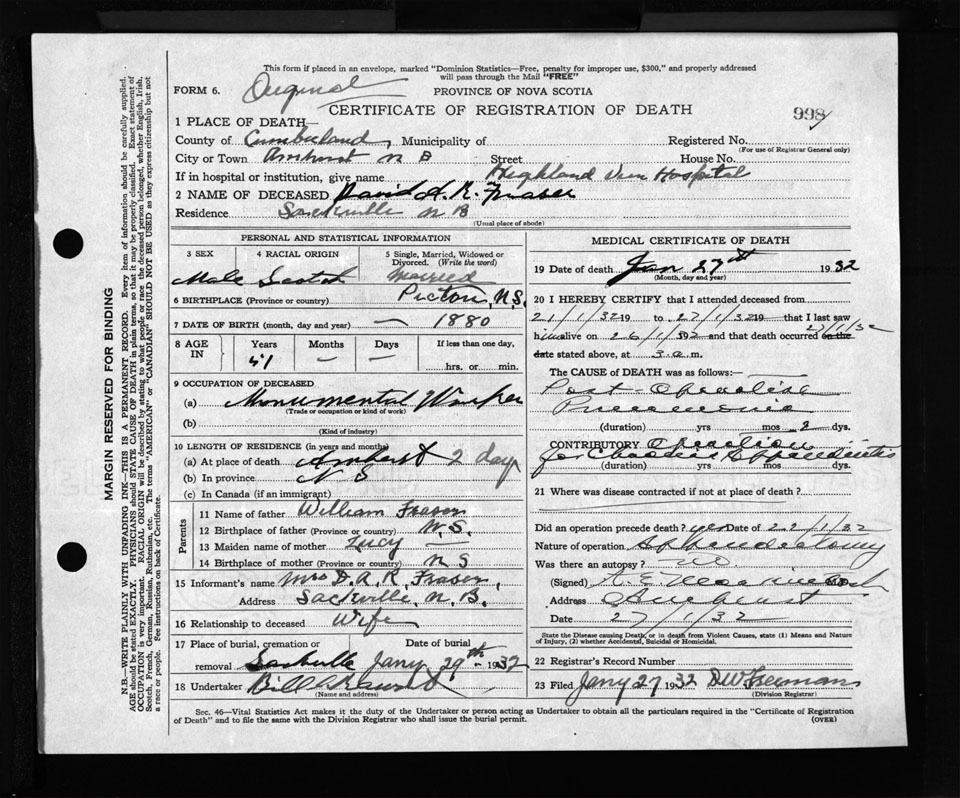 This form if placed in an envelope, marked "Dominion Statistics—Free, penalty for improper use, $300," and properly addressed
will pass through the Mail "FREE"
FORM 6. Original PROVINCE OF NOVA SCOTIA
CERTIFICATE OF REGISTRATION OF DEATH 998
1 PLACE OF DEATH—
County of Cumberland, Municipality of Registered No.
(For use of Registrar General only)
City or Town Amherst N B Street House No.
If in hospital or institution, give name Highland View Hospital
2 NAME OF DECEASED David A. R. Fraser
Residence Sackville N B
(Usual place of abode)
PERSONAL AND STATISTICAL INFORMATION
3 SEX 4 RACIAL ORIGIN 5 Single, Married, Widowed or Divorced. (Write the word)
Male Scotch Married
6 BIRTHPLACE (Province or country) Pictou, N.S.
7 DATE OF BIRTH (month, day and year) — 1880
8 AGE IN Years Months Days If less than one day,
51 — — hrs. or min.
9 OCCUPATION OF DECEASED
(a) Monumental Worker
(Trade or occupation or kind of work)
(b)
(Kind of industry)
10 LENGTH OF RESIDENCE (in years and months)
(a) At place of death Amherst 2 days
(b) In province N S
(c) In Canada (if an immigrant)
Parents
11 Name of father William Fraser
12 Birthplace of father (Province or country) N.S.
13 Maiden name of mother Lucy —
14 Birthplace of mother (Province or country) N S
15 Informant's name Mrs D. A. R. Fraser,
Address Sackville, N. B.
16 Relationship to deceased Wife
17 Place of burial, cremation or Date of burial
removal Sackville Jany 29th - 1932
18 Undertaker Bill
(Name and address)
MEDICAL CERTIFICATE OF DEATH
19 Date of death Jan 27th 1932
(Month, day and year)
20 I HEREBY CERTIFY that I attended deceased from
21/1/32 19 to 27/1/32 19 that I last saw
him alive on 26/1/32 and that death occurred on the 27/1/32
date stated above, at 3 a.m.
The CAUSE of DEATH was as follows:—
Post-Operative
Pneumonia
(duration) yrs mos 2 dys.
CONTRIBUTORY Operation
for Appendicitis
(duration) yrs mos dys.
21 Where was disease contracted if not at place of death?
Did an operation precede death? yes Date of 22/1/32
Nature of operation Appendectomy
Was there an autopsy? no
(Signed) M.D.
Address Amherst
Date 27/1/32
State the Disease causing Death, or in death from Violent Causes, state (1) Means and Nature
of Injury, (2) whether Accidental, Suicidal or Homicidal.
22 Registrar's Record Number
23 Filed Jany 27 1932 D W Freeman
(Division Registrar)
Sec. 46—Vital Statistics Act makes it the duty of the Undertaker or person acting as Undertaker to obtain all the particulars required in the "Certificate of Registration
of Death" and to file the same with the Division Registrar who shall issue the burial permit. (OVER)
MARGIN RESERVED FOR BINDING
N.B.—WRITE PLAINLY WITH UNFADING INK—THIS IS A PERMANENT RECORD. Every item of information should be carefully supplied.
AGE should be stated EXACTLY. PHYSICIANS should STATE CAUSE OF DEATH in plain terms, so that it may be properly classified. Exact statement of
OCCUPATION is very important. RACIAL ORIGIN will be described by stating to what people or race the deceased person belonged, whether English, Irish,
Scotch, French, German, Russian, Ruthenian, etc. The terms "AMERICAN" or "CANADIAN" SHOULD NOT BE USED as they express citizenship but not
a race or people. See instructions on back of Certificate.